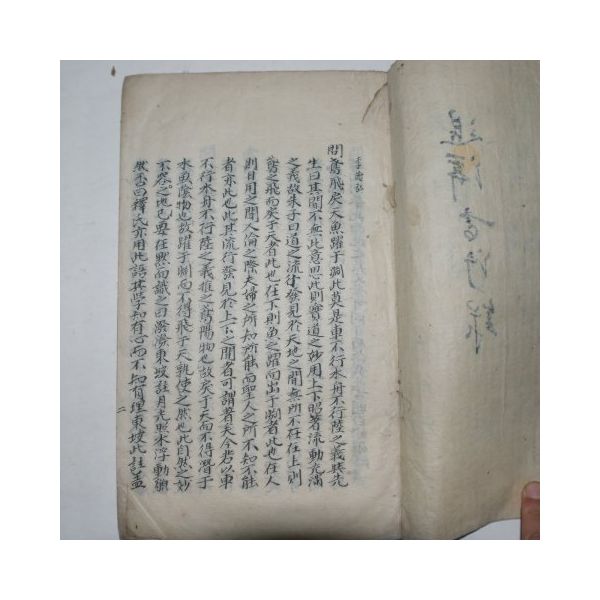 問鳶飛戾天魚躍于淵此莫是車不行水舟不行陸之義矣先
生曰其間不無此意思此則實道之妙用上下昭著流動充滿
之義故朱子曰道之流行發見於天地之間無所不在在上則
鳶之飛而戾于天者此也在下則魚之躍而出于淵者此也在人
則日用之間人倫之際夫婦之所知所能而聖人之所不知不能
者亦此也此其流行發見於上下之間者可謂著矣今若以車
不行水舟不行陸之義推之鳶陽物也故戾于天而不得潛于
水魚陰物也故躍于淵而不得飛于天孰使之然也此自然之妙
不容之地也要在默而識之曰潑潑東坡註月光照水浮動
然否曰釋氏亦用此語其學知有心而不知有理東坡此註蓋
二